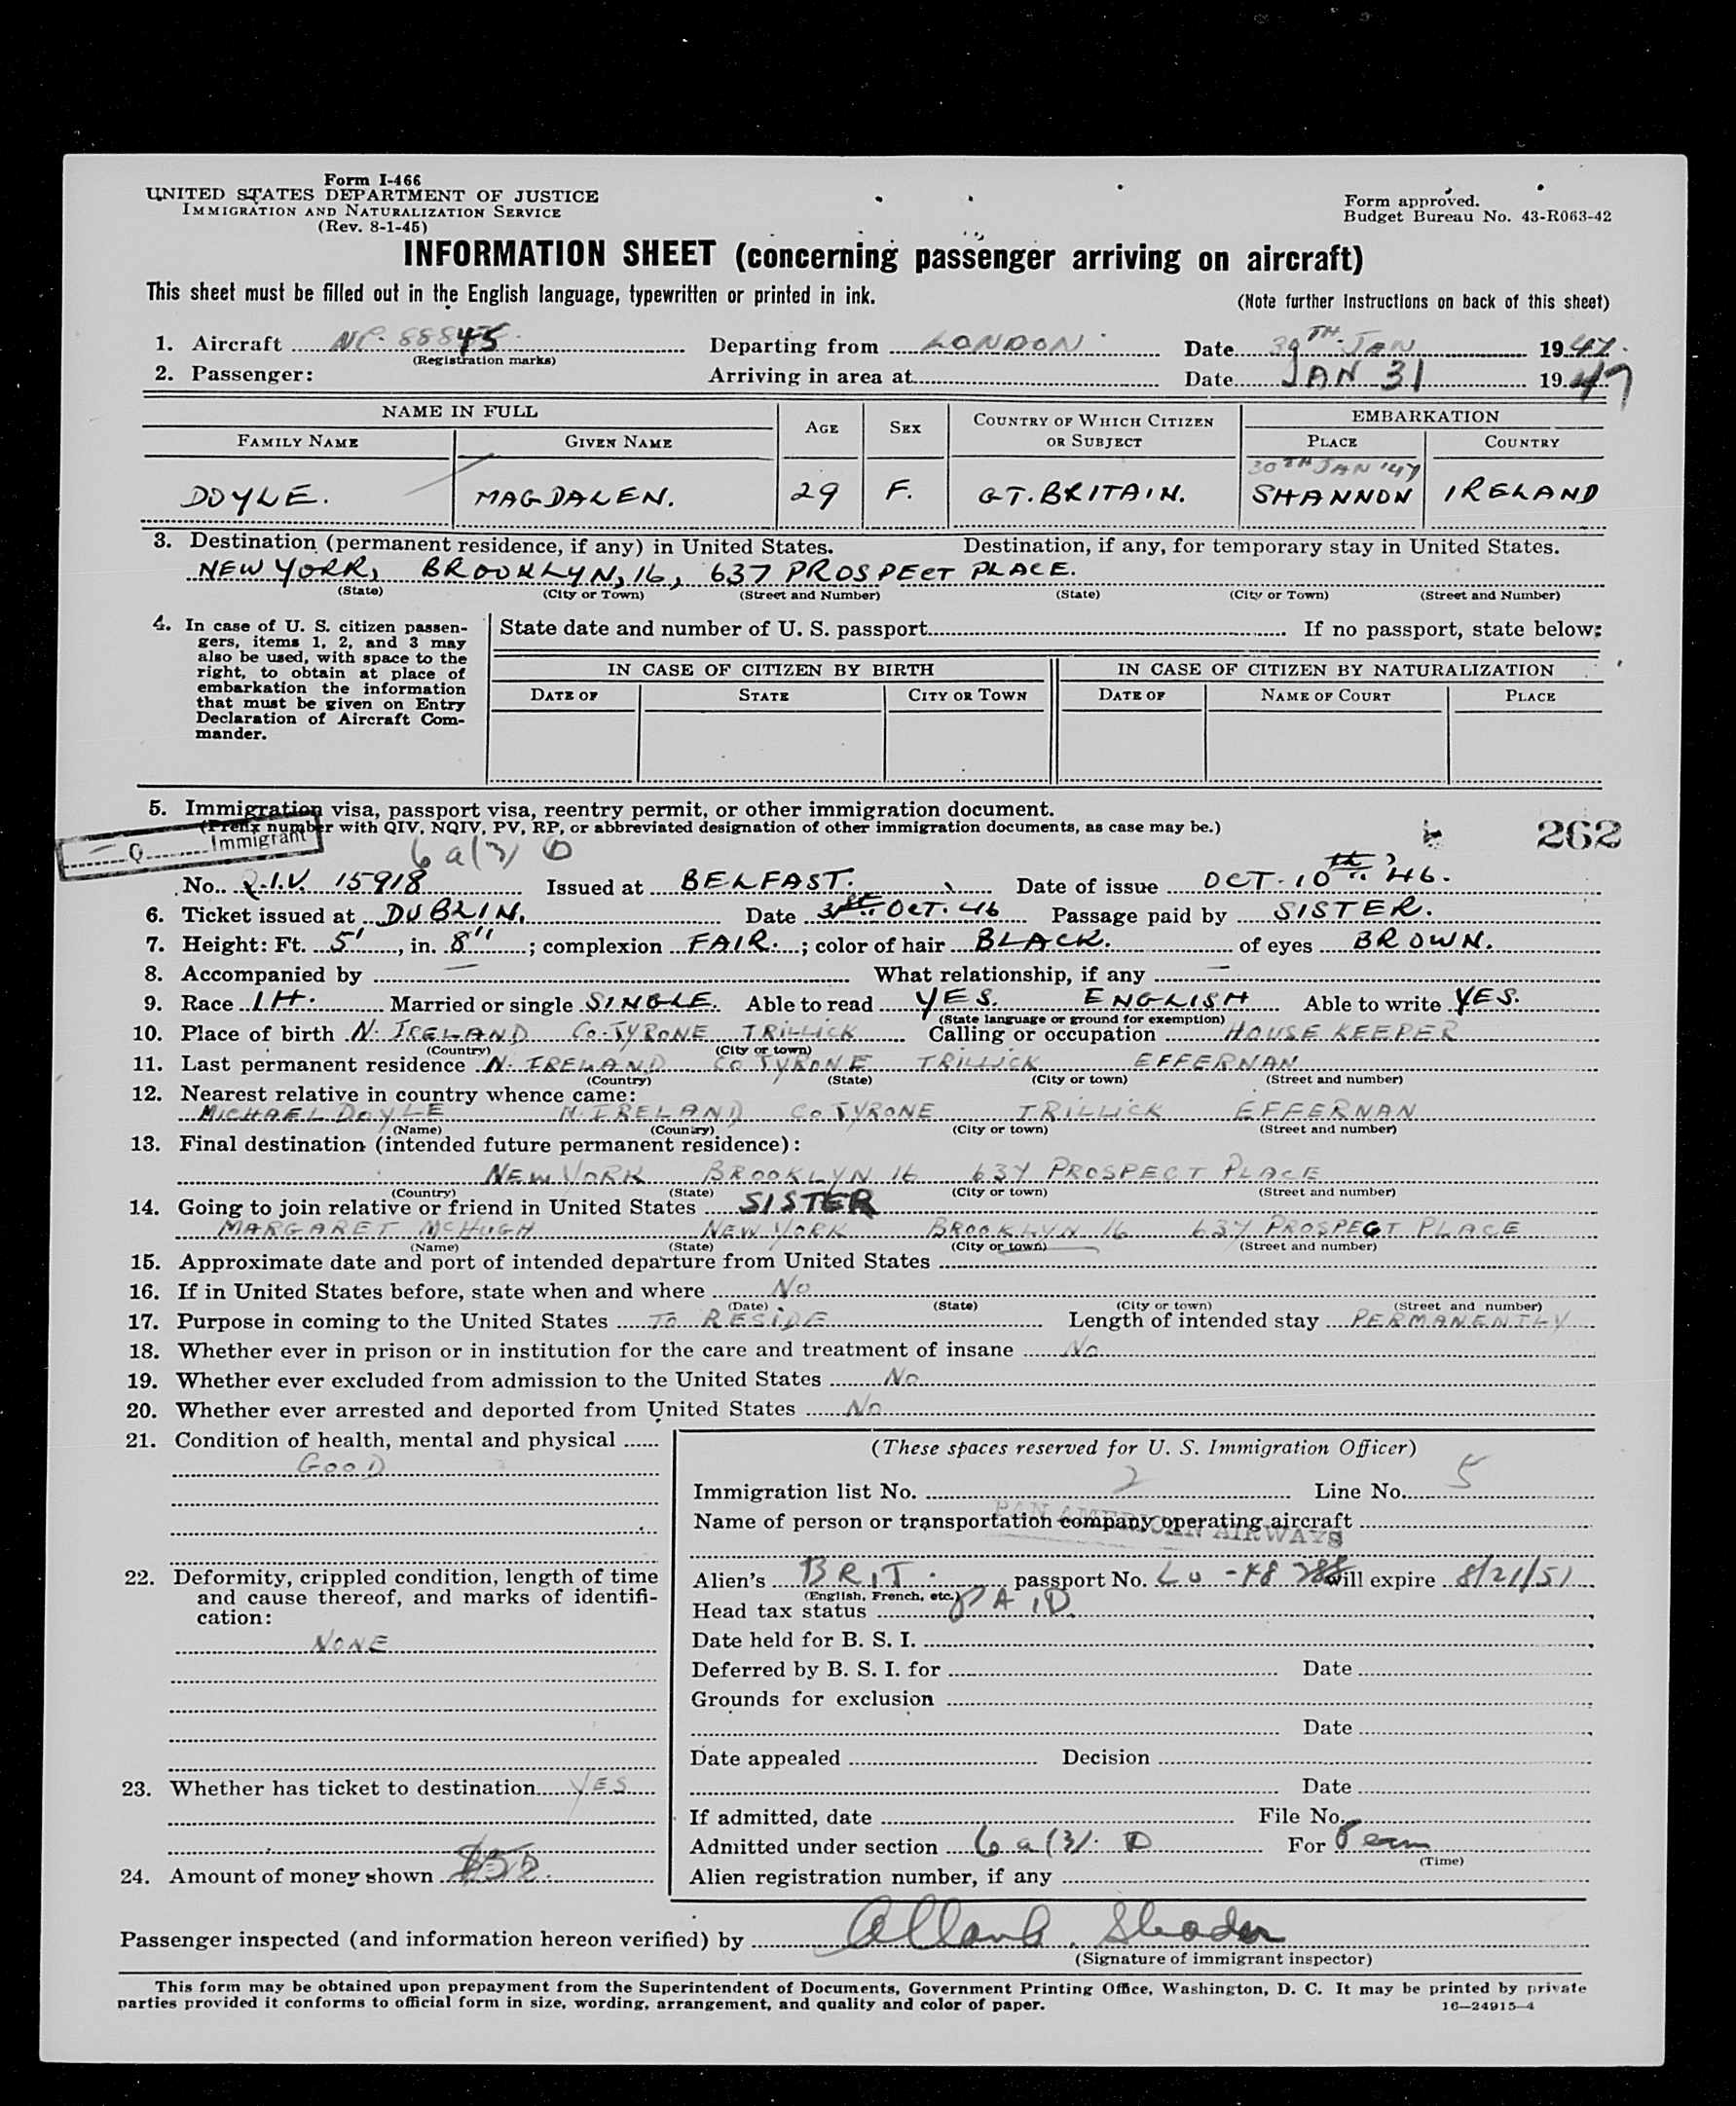 Form I-466
UNITED STATES DEPARTMENT OF JUSTICE
IMMIGRATION AND NATURALIZATION SERVICE
(Rev. 8-1-45)
Form approved.
Budget Bureau No. 43-R063-42
INFORMATION SHEET (concerning passenger arriving on aircraft)
This sheet must be filled out in the English language, typewritten or printed in ink.
(Note further instructions on back of this sheet)
1. Aircraft NC-88845 Departing from LONDON Date 30TH JAN 1947.
(Registration marks)
2. Passenger: Arriving in area at Date JAN 31 1947
NAME IN FULL AGE SEX COUNTRY OF WHICH CITIZEN OR SUBJECT EMBARKATION
FAMILY NAME GIVEN NAME PLACE COUNTRY
30TH JAN '47
DOYLE. MAGDALEN. 29 F. GT. BRITAIN. SHANNON IRELAND
3. Destination (permanent residence, if any) in United States. Destination, if any, for temporary stay in United States.
NEW YORK, BROOKLYN, 16, 637 PROSPECT PLACE.
(State) (City or Town) (Street and Number) (State) (City or Town) (Street and Number)
4. In case of U. S. citizen passengers, items 1, 2, and 3 may also be used, with space to the right, to obtain at place of embarkation the information that must be given on Entry Declaration of Aircraft Commander.
State date and number of U. S. passport If no passport, state below:
IN CASE OF CITIZEN BY BIRTH IN CASE OF CITIZEN BY NATURALIZATION
DATE OF STATE CITY OR TOWN DATE OF NAME OF COURT PLACE
5. Immigration visa, passport visa, reentry permit, or other immigration document.
(Prefix number with QIV, NQIV, PV, RP, or abbreviated designation of other immigration documents, as case may be.)
Q Immigrant
262
6a(3) D
No. Q.I.V. 15918 Issued at BELFAST. Date of issue OCT. 10th '46.
6. Ticket issued at DUBLIN. Date 31st OCT. 46 Passage paid by SISTER.
7. Height: Ft. 5', in. 8"; complexion FAIR.; color of hair BLACK. of eyes BROWN.
8. Accompanied by — What relationship, if any —
9. Race IH. Married or single SINGLE. Able to read YES. ENGLISH Able to write YES.
(State language or ground for exemption)
10. Place of birth N. IRELAND CO. TYRONE TRILLICK Calling or occupation HOUSE KEEPER
(Country) (City or town)
11. Last permanent residence N. IRELAND CO TYRONE TRILLICK EFFERNAN
(Country) (State) (City or town) (Street and number)
12. Nearest relative in country whence came:
MICHAEL DOYLE N. IRELAND CO TYRONE TRILLICK EFFERNAN
(Name) (Country) (City or town) (Street and number)
13. Final destination (intended future permanent residence):
NEW YORK BROOKLYN 16 637 PROSPECT PLACE
(Country) (State) (City or town) (Street and number)
14. Going to join relative or friend in United States SISTER
MARGARET MCHUGH NEW YORK BROOKLYN 16 637 PROSPECT PLACE
(Name) (State) (City or town) (Street and number)
15. Approximate date and port of intended departure from United States
16. If in United States before, state when and where No
(Date) (State) (City or town) (Street and number)
17. Purpose in coming to the United States TO RESIDE Length of intended stay PERMANENTLY
18. Whether ever in prison or in institution for the care and treatment of insane No
19. Whether ever excluded from admission to the United States No
20. Whether ever arrested and deported from United States No
21. Condition of health, mental and physical
GOOD
22. Deformity, crippled condition, length of time and cause thereof, and marks of identification:
NONE
23. Whether has ticket to destination YES
24. Amount of money shown $50.
(These spaces reserved for U. S. Immigration Officer)
Immigration list No. 2 Line No. 5
Name of person or transportation company operating aircraft
PAN AMERICAN AIRWAYS
Alien's BRIT. passport No. LU-48288 will expire 8/21/51
(English, French, etc.)
Head tax status PAID
Date held for B. S. I.
Deferred by B. S. I. for Date
Grounds for exclusion
Date
Date appealed Decision
Date
If admitted, date File No.
Admitted under section 6a(3). D For Perm
(Time)
Alien registration number, if any
Passenger inspected (and information hereon verified) by
(Signature of immigrant inspector)
This form may be obtained upon prepayment from the Superintendent of Documents, Government Printing Office, Washington, D. C. It may be printed by private
parties provided it conforms to official form in size, wording, arrangement, and quality and color of paper.
16—24915-4